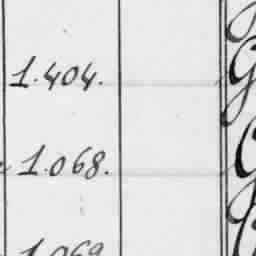 1.404.
1.068.
1.069